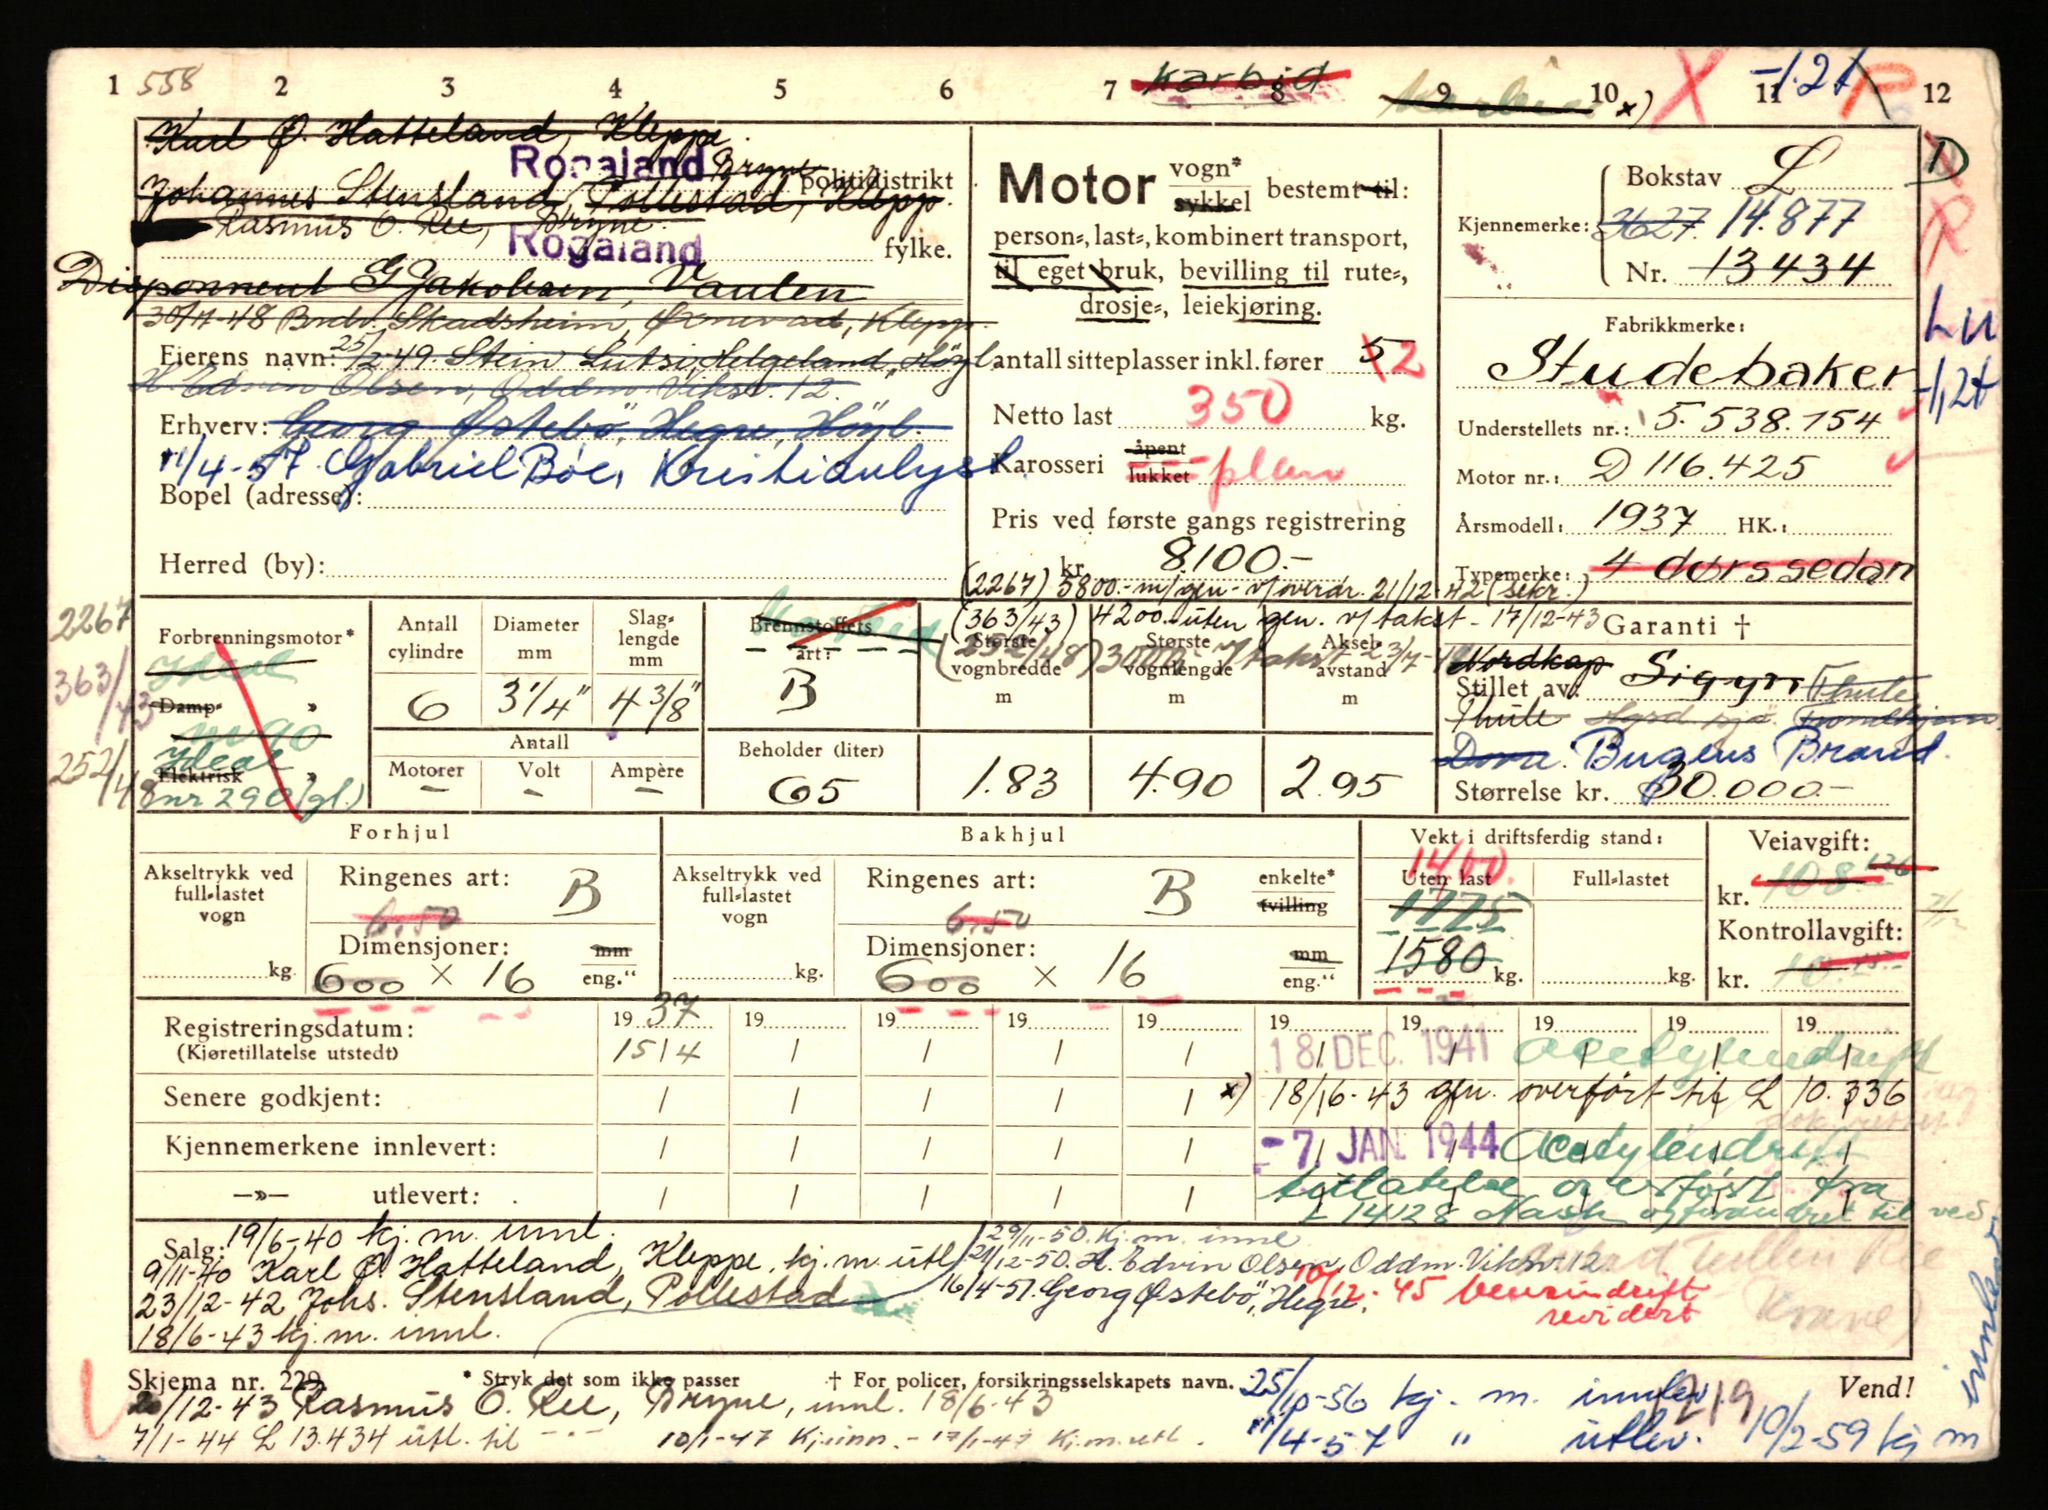 1 558 2 3 4 5 6 7 karbid 8 9 10 x) 11 -1.2t 12
Karl Ø. Hatteland, Kleppe.
Rogaland politidistrikt
Bryne
Johannes Stensland, Pollestad, Klepp.
Rasmus O. Ree, Bryne.
Rogaland fylke.
Disponent G Jakobsen, Vaulen
30/11-48 Skadsheim, Ørnevad, Klepp.
Eierens navn: 25/2-49. Stein Lutsi, Helgeland, Høyl.
H. Edvin Olsen, Oddm. Viksv. 12.
Erhverv: Georg Østebö, Hegre, Höyl.
11/4-57. Gabriel Bøe, Kristianlyst
Bopel (adresse):
Herred (by):
Motor vogn* sykkel bestemt til:
person-, last-, kombinert transport,
til eget bruk, bevilling til rute-,
drosje-, leiekjøring.
antall sitteplasser inkl. fører 5 2
Netto last 350 kg.
Karosseri åpent lukket plan
Pris ved første gangs registrering
kr. 8.100.-
(2267) 5800.- m/gen - v/overdr. 21/12-42 (sekr.)
(363/43) 4200.- uten gen. v/takst - 17/12-43
(252/48) 3000.- v/takst - 23/7-48
Bokstav L
Kjennemerke: 3627. 14.877
Nr. 13434
D
R
Lu
-1,2t
Fabrikkmerke:
Studebaker
Understellets nr.: 5.538.154
Motor nr.: D 116.425
Årsmodell: 1937 HK.:
Typemerke: 4 dørs sedan
2267
363/43
252/48
Forbrenningsmotor*
Ideal
Damp- »
m 90
Ideal
Elektrisk »
nr 290 (gl.)
Antall cylindre 6
Diameter mm 3 1/4"
Slag-lengde mm 4 3/8"
Antall
Motorer - Volt - Ampère -
Brennstoffets art: B
Beholder (liter) 65
Største vognbredde m 1.83
Største vognlengde m 4.90
Aksel-avstand m 2.95
Garanti †
Nordkap
Stillet av: Sigyn Thule
Thule
Dovre. Bugens Brand.
Størrelse kr. 30.000.-
Forhjul
Akseltrykk ved full-lastet vogn kg.
Ringenes art: B
6.50
Dimensjoner: mm
600 x 16 eng."
Bakhjul
Akseltrykk ved full-lastet vogn kg.
Ringenes art: B enkelte* tvilling
6.50
Dimensjoner: mm
600 x 16 eng."
Vekt i driftsferdig stand:
1400.
Uten last Full-lastet
1775
1580 kg. kg.
Veiavgift:
kr. 108.- 126
Kontrollavgift:
kr. 10.- 15.-
Registreringsdatum: 19 37 19 19 19 19 19 19 19 19 19
(Kjøretillatelse utstedt) 15/4 18. DEC. 1941 Acetylendrift
Senere godkjent: x) 18/6-43 gen. overført til L 10.336
Kjennemerkene innlevert: -7. JAN. 1944 Acetylendrift
—»— utlevert: tillatelse overført fra
L 14128 Nash og forandret til ved
Salg: 19/6-40 kj. m. innl.
9/11-40 Karl Ø. Hatteland, Kleppe, kj. m. utl.
23/12-42 Johs. Stensland, Pollestad
18/6-43 kj. m. innl.
29/11-50. Kj. m. innl
21/12-50. H. Edvin Olsen, Oddm. Viksv. 12.
16/4-51. Georg Østebö, Hegre.
10/12-45 bensindrift
revidert
Skjema nr. 229 * Stryk det som ikke passer † For policer, forsikringsselskapets navn. Vend!
20/12-43 Rasmus O. Ree, Bryne, innl. 18/6-43
7/1-44 L 13.434 utl. til - " -
10/1-47 Kj. inn. - 17/1-47 Kj. m. utl.
25/10-56 kj. m. innlev.
11/4-57 " utlev.
1219
10/2-59 kj m
innlev